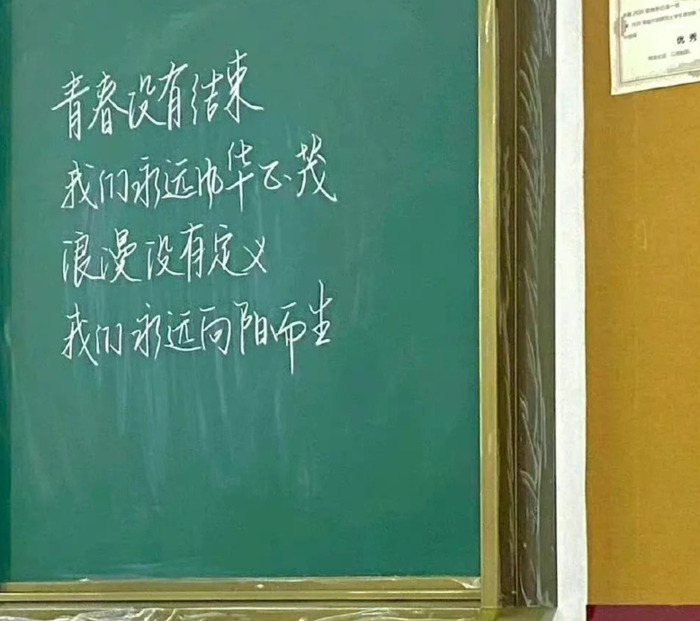 青春没有结束
我们永远风华正茂
浪漫没有定义
我们永远向阳而生
优秀